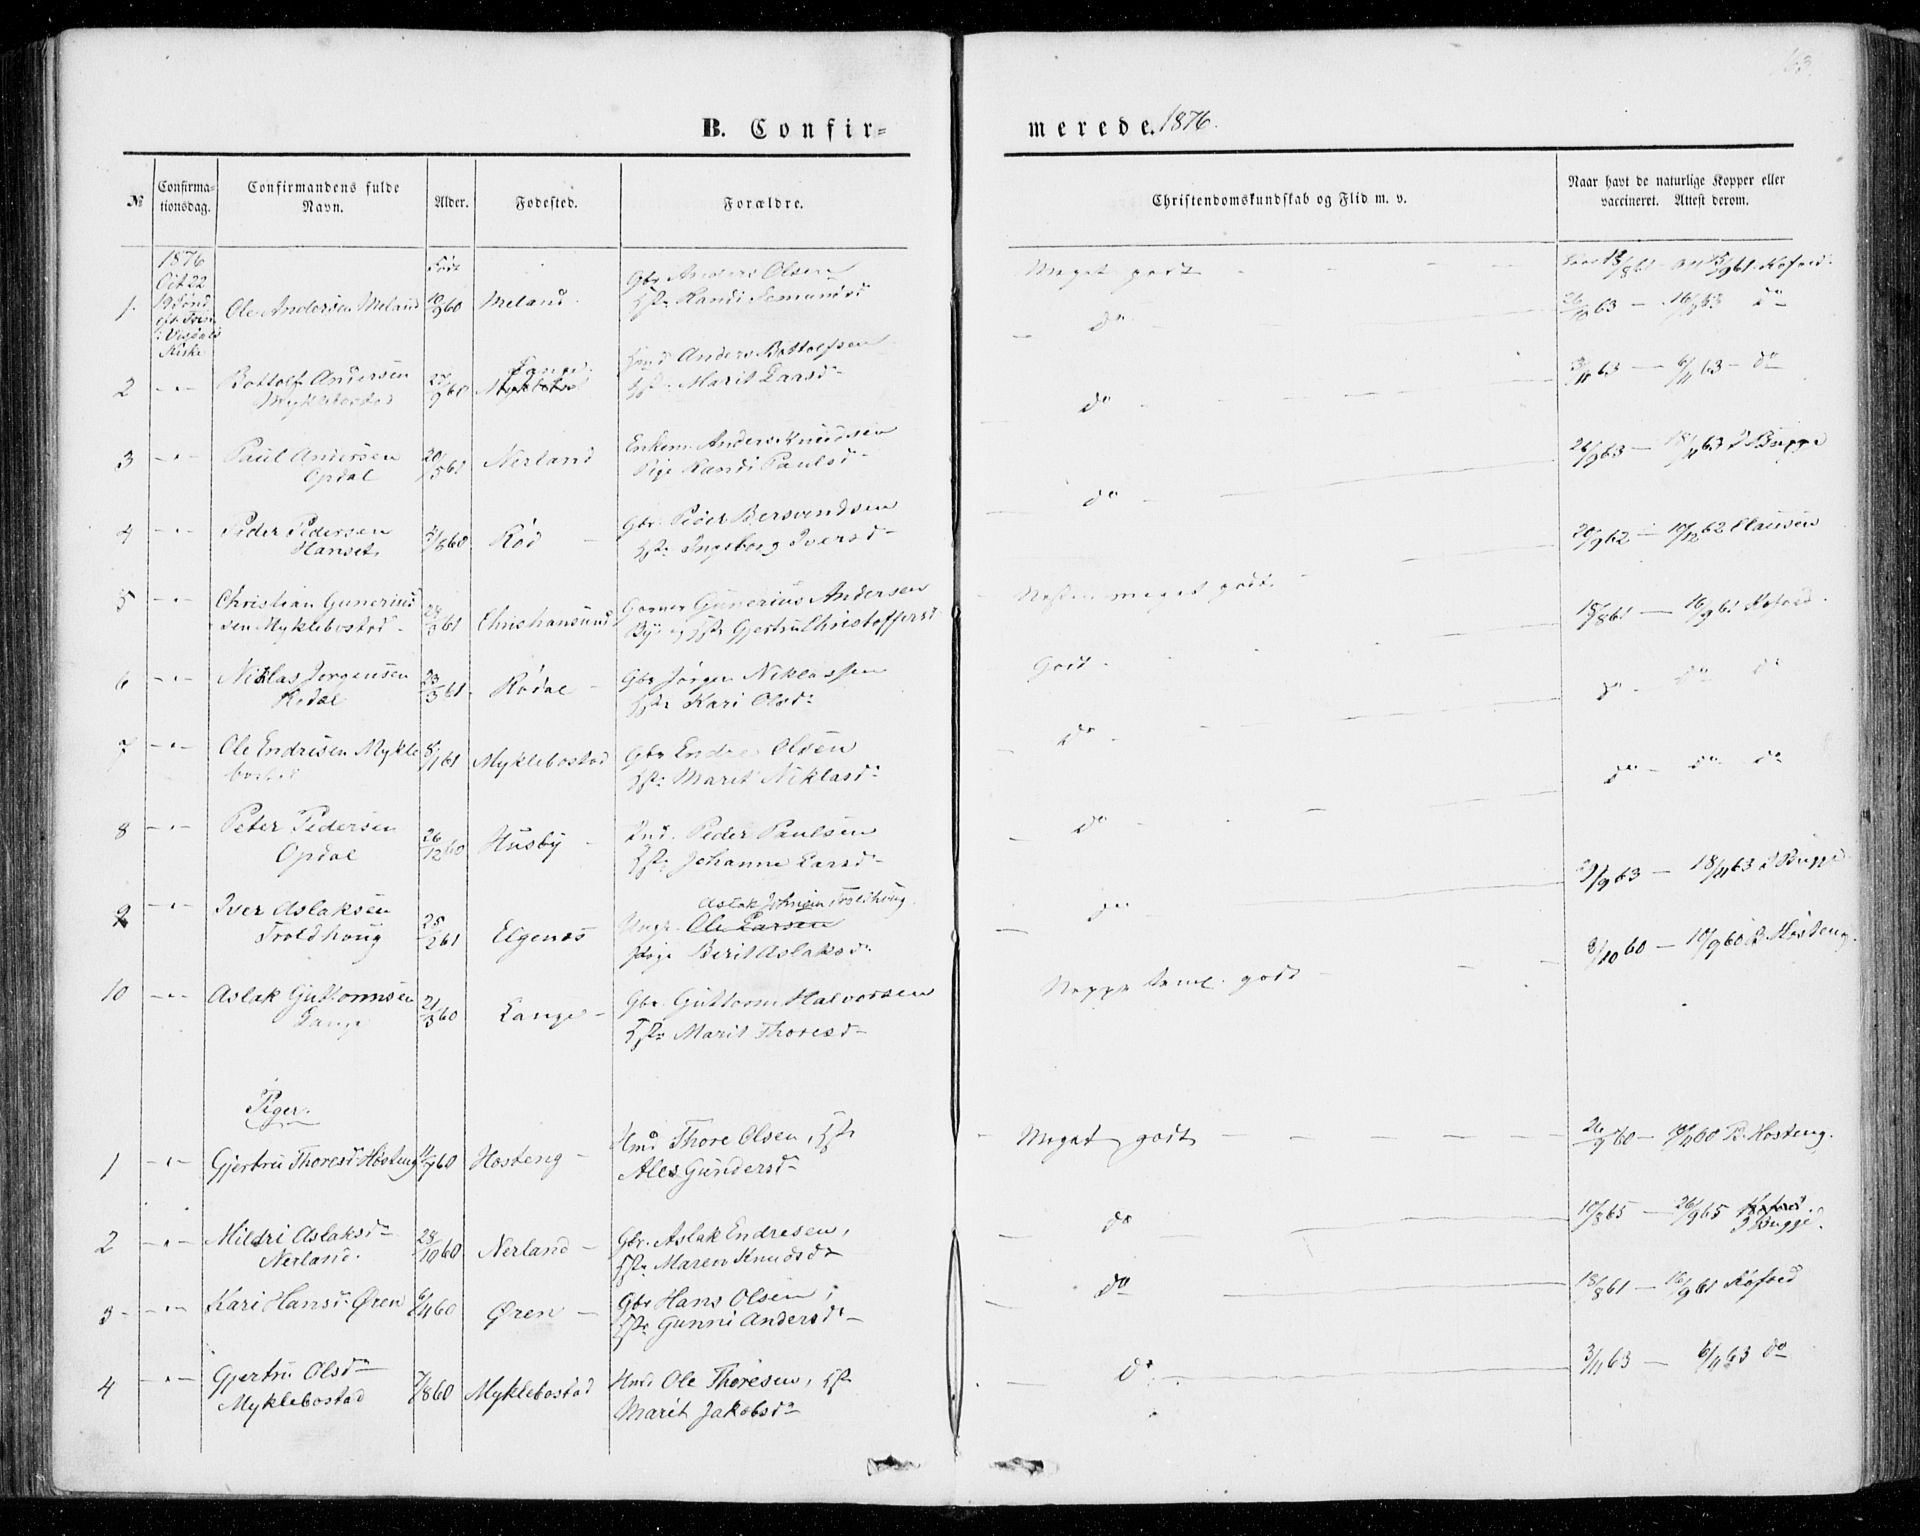 B. Confir-
merede. 1876.
№
Confirma-
tionsdag.
Confirmandens fulde
Navn.
Alder.
Fødested.
Forældre.
Christendomskundskab og Flid m. v.
Naar havt de naturlige Kopper eller
vaccineret. Attest derom.
1876
Oct 22
Kirke
Født
1. Ole Andersen Meland 60 Meland.
Gbr Anders Olsen
Hstr Randi
Meget godt
Kofoed.
2 Bottolf Andersen
Myklebostad
27/9 60
Lange
Anders Bottolfsen
Hstr Marit Larsd
do
26/10 63 — 63 do
3 Paul Andersen
Opdal
20/5 61 Nerland
Enkem. Anders Knudsen
Pige Randi Paulsd
do
3/11 63 — 6/11 63 — do
4 Peder Pedersen
Hanset
/8 60 Rød
Gbr Peder Bersvendsen
Hstr Ingeborg Iversd
do
26/9 63 — 18/11 63 Bugge
5 Christian Gunerius
sen Myklebostad
61 Christiansund
Gunerius Andersen
Hstr Gjertru Christoffersd
Næsten meget godt
20/9 62 — 10/12 62 Clausen
6 Niklas Jørgensen
Rødal
23/3 61 Rødal
Gbr Jørgen Niklassen
Hstr Kari Olsd
Godt
15/8 61 — 16/9 61 Kofoed.
7 Ole Endresen Mykle
bostad
/1 61 Myklebostad
Gbr Endre Olsen
Hstr Marit Niklasd
do
do do do
8 Peter Pedersen
Opdal
26/12 60 Husby
Ind. Peder Paulsen
Hstr Johanne Larsd
do
do do do
9 Iver Aslaksen
Troldhoug
25/2 61 Elgenæs
Aslak Johnsen Troldhoug.
Ungk. Ole Larsen
Pige Berit Aslaksd
do
/9 63 — 18/11 63 Bugge
10 Aslak Guttormsen
Lange
21/3 60 Lange
Gbr Guttorm Halvorsen
Hstr Marit Thoresd
Neppe teml. godt
/10 60 — 10/9 60 Høsteng.
Piger.
1 Gjertru Thoresd Høsteng /9 60 Høsteng
Hmd Thore Olsen, Hstr
Ales Gundersd
Meget godt
26/9 60 — /11 60 P. Høsteng.
2 Mildri Aslaksd
Nerland.
28/10 60 Nerland
Gbr. Aslak Endresen,
Hstr Maren Knudsd
do
10/8 65 — 26/9 65 Kofoed.
Bugge.
3 Kari Hansd Øren 6/4 60 Øren
Gbr Hans Olsen,
Hstr Gunni Andersd
do
18/8 61 — 16/9 61 Kofoed
4 Gjertru Olsd
Myklebostad
7/8 60 Myklebostad
Hmd Ole Thoresen, Hstr
Marit Jakobsd
do
3/11 63 — 6/11 63 do